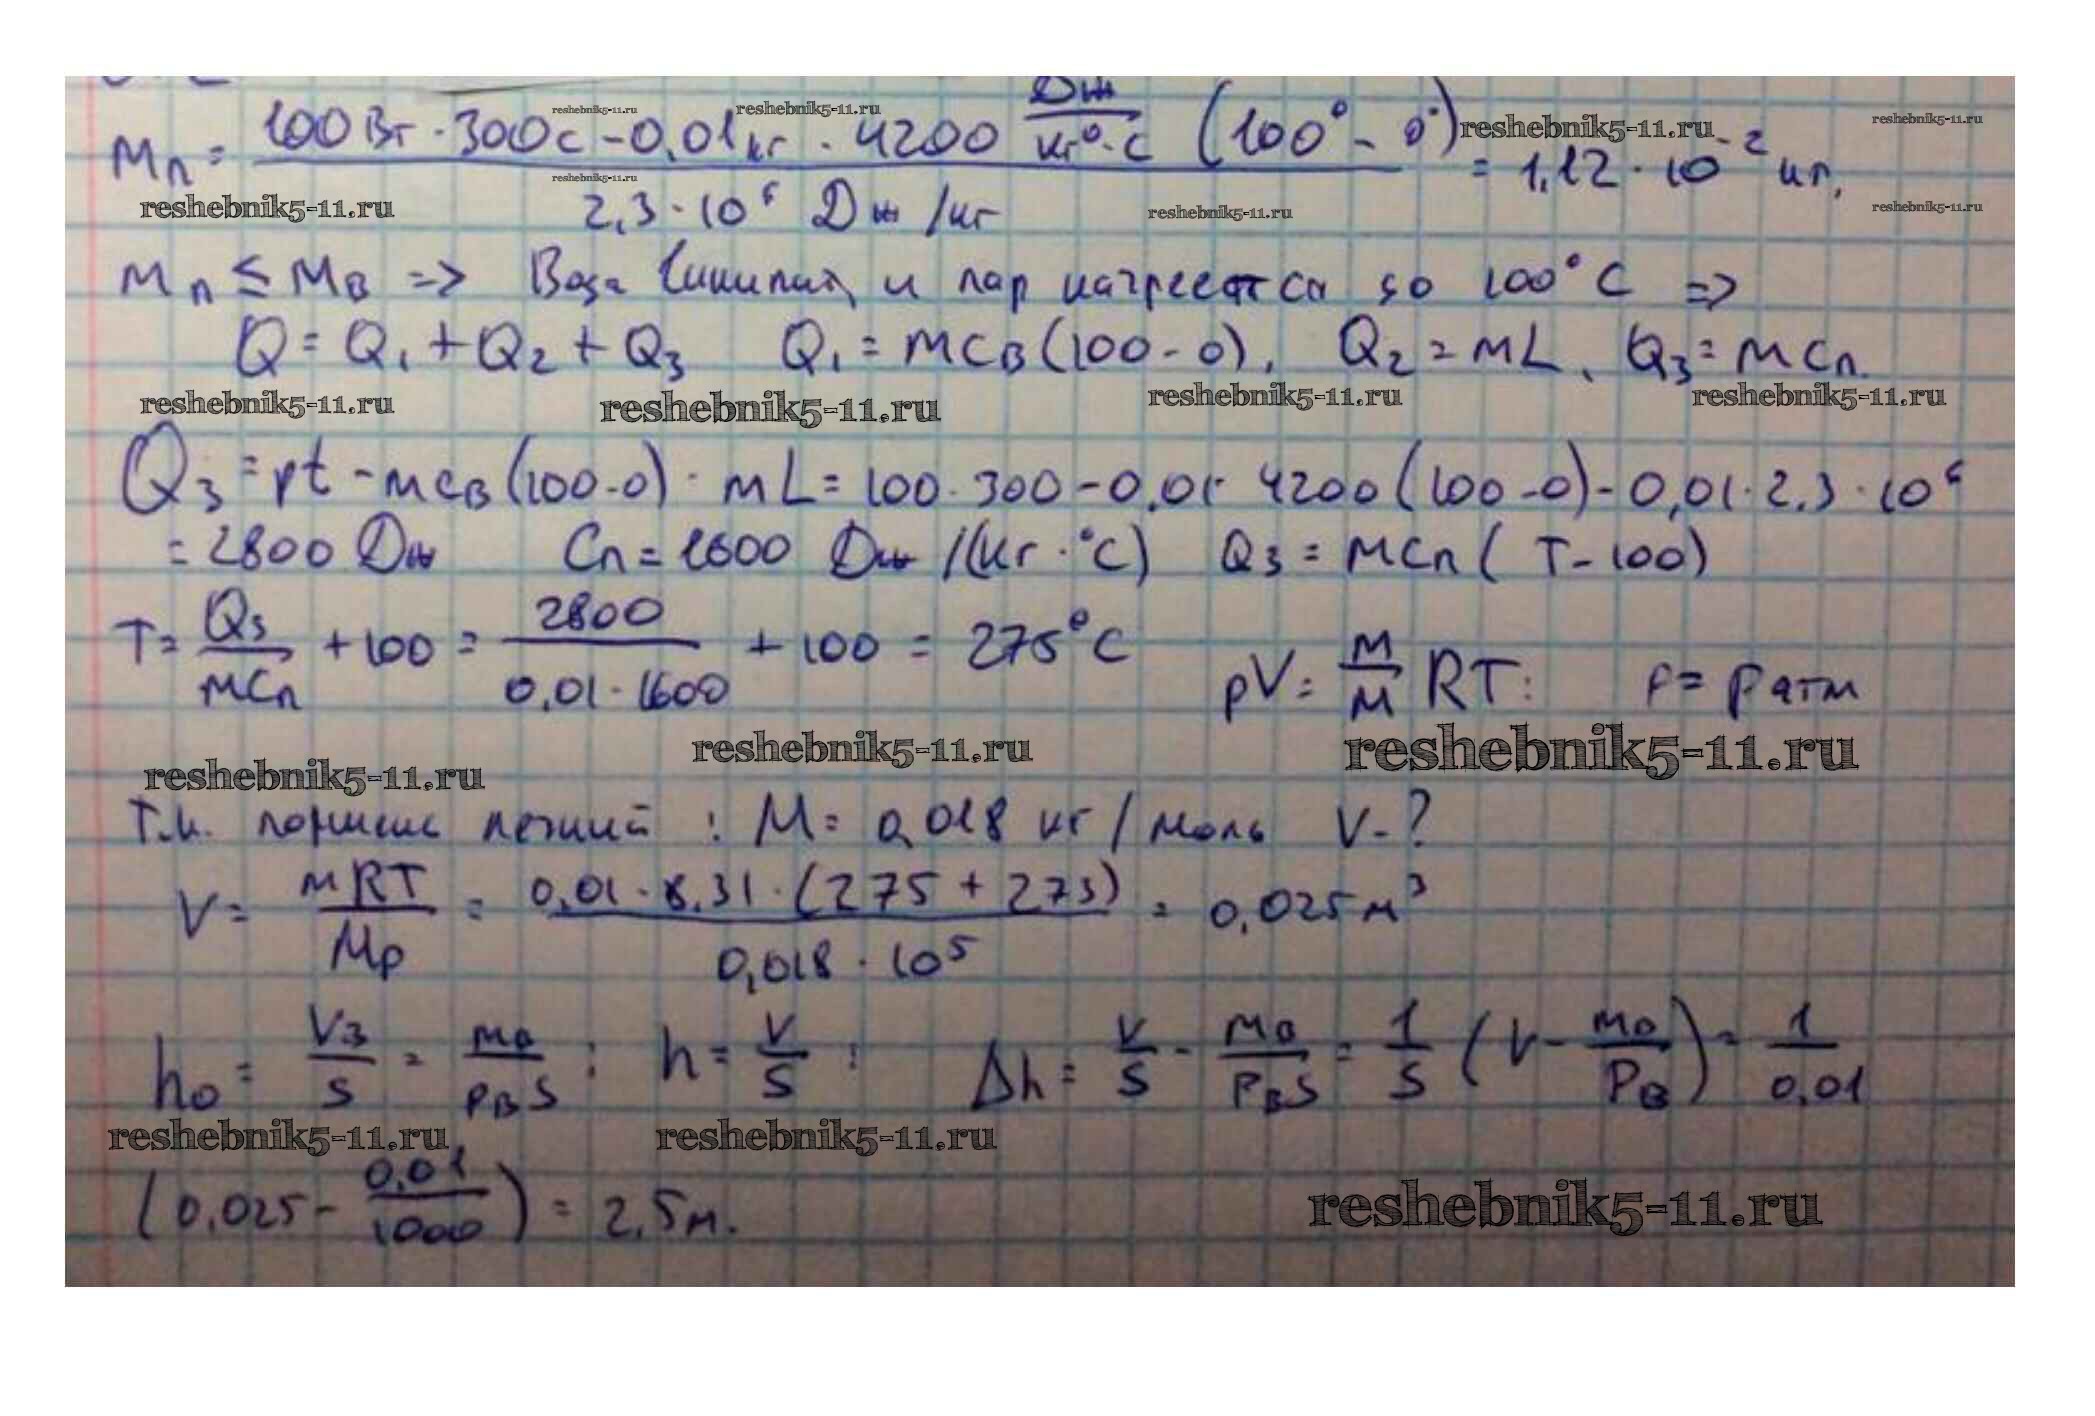 Mп = (100 Вт · 300 с - 0,01 кг · 4200 Дж/(кг°·С) (100° - 0°)) / (2,3 · 10⁶ Дж/кг) = 1,12 · 10⁻² кг,
reshebnik5-11.ru reshebnik5-11.ru reshebnik5-11.ru reshebnik5-11.ru
reshebnik5-11.ru
reshebnik5-11.ru reshebnik5-11.ru reshebnik5-11.ru
Mп ≤ Mв => Вода и пар нагреется до 100°C =>
Q = Q₁ + Q₂ + Q₃ Q₁ = mCв(100 - 0), Q₂ = mL, Q₃ = mCп.
reshebnik5-11.ru reshebnik5-11.ru reshebnik5-11.ru reshebnik5-11.ru
Q₃ = pt - mcв(100-0) · mL = 100 · 300 - 0,01 · 4200 (100 - 0) - 0,01 · 2,3 · 10⁶
= 2800 Дж Cп = 1600 Дж/(кг · °C) Q₃ = mCп(T - 100)
T = Q₃/(mCп) + 100 = 2800/(0,01 · 1600) + 100 = 275°C pV = m/M RT: p = pатм
reshebnik5-11.ru reshebnik5-11.ru reshebnik5-11.ru
Т.к. поршень легкий : M = 0,018 кг/моль V - ?
V = mRT/(Mp) = (0,01 · 8,31 · (275 + 273))/(0,018 · 10⁵) = 0,025 м³
h₀ = Vв/S = mв/(pвS) ; h = V/S ; Δh = V/S - mв/(pвS) = 1/S (V - mв/pв) = 1/0,01
reshebnik5-11.ru reshebnik5-11.ru
(0,025 - 0,01/1000) = 2,5 м.
reshebnik5-11.ru